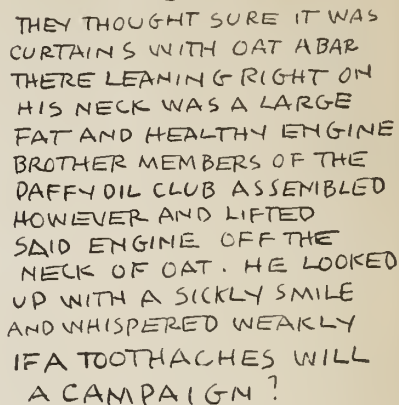 THEY THOUGHT SURE IT WAS
CURTAINS WITH OAT A BAR
THERE LEANING RIGHT ON
HIS NECK WAS A LARGE
FAT AND HEALTHY ENGINE
BROTHER MEMBERS OF THE
DAFFYDIL CLUB ASSEMBLED
HOWEVER AND LIFTED
SAID ENGINE OFF THE
NECK OF OAT. HE LOOKED
UP WITH A SICKLY SMILE
AND WHISPERED WEAKLY
IF A TOOTHACHES WILL
A CAMPAIGN?